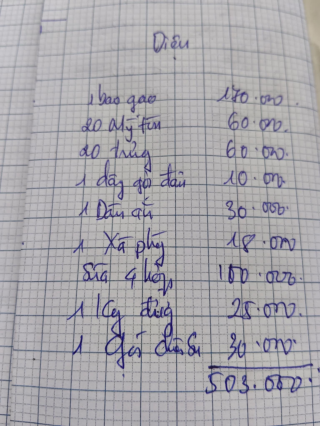 Diễn
1 bao gạo 170.000
20 Mỳ tôm 60.000.
20 trứng 60.000.
1 dây gội đầu 10.000
1 Dầu ăn 30.000
1 Xà phòng 18.000
Sữa 4 hộp 100.000.
1 Kg đường 25.000.
1 30.000
503.000.